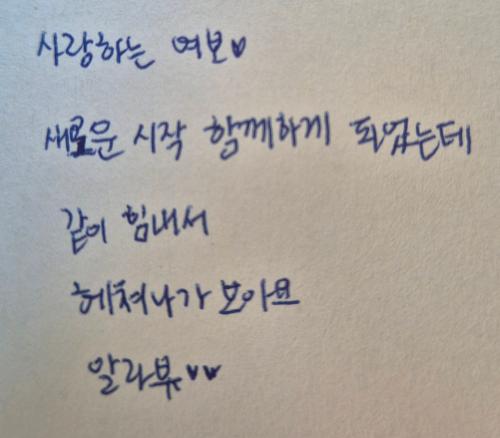 사랑하는 여보♥
새로운 시작 함께하게 되었는데
같이 힘내서
헤쳐나가 보아요
알라뷰♥♥